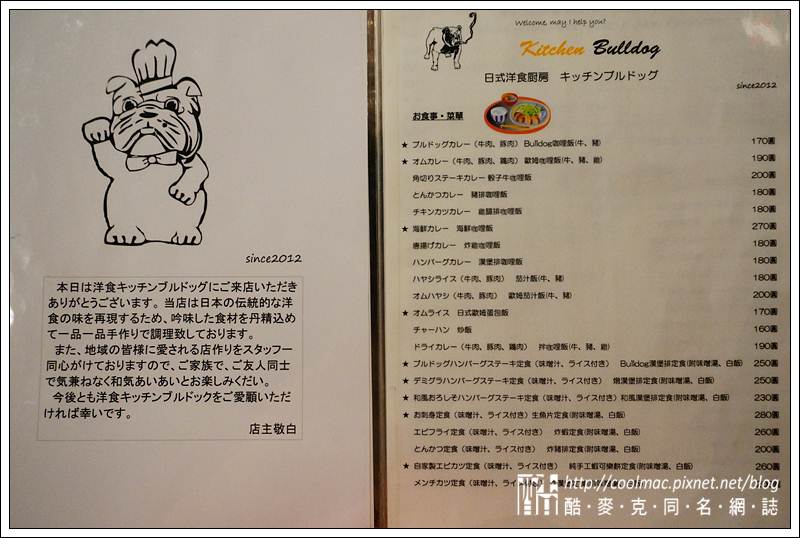 since2012
本日は洋食キッチンブルドッグにご来店いただき
ありがとうございます。当店は日本の伝統的な洋
食の味を再現するため、吟味した食材を丹精込め
て一品一品手作りで調理致しております。
また、地域の皆様に愛される店作りをスタッフ一
同心がけておりますので、ご家族で、ご友人同士
で気兼ねなく和気あいあいとお楽しみくだい。
今後とも洋食キッチンブルドックをご愛顧いただ
ければ幸いです。
店主敬白
Welcome, may I help you?
Kitchen Bulldog
日式洋食厨房 キッチンブルドッグ
since2012
お食事・菜單
★ ブルドッグカレー（牛肉、豚肉） Bulldog咖哩飯(牛、豬) 170圓
★ オムカレー（牛肉、豚肉、鶏肉） 歐姆咖哩飯(牛、豬、雞) 190圓
角切りステーキカレー 骰子牛咖哩飯 200圓
とんかつカレー 豬排咖哩飯 180圓
チキンカツカレー 雞腿排咖哩飯 180圓
★ 海鮮カレー 海鮮咖哩飯 270圓
唐揚げカレー 炸雞咖哩飯 180圓
ハンバーグカレー 漢堡排咖哩飯 180圓
ハヤシライス（牛肉、豚肉） 茄汁飯(牛、豬) 180圓
オムハヤシ（牛肉、豚肉） 歐姆茄汁飯(牛、豬) 200圓
★ オムライス 日式歐姆蛋包飯 170圓
チャーハン 炒飯 160圓
ドライカレー（牛肉、豚肉、鶏肉） 拌咖哩飯(牛、豬、雞) 190圓
★ ブルドッグハンバーグステーキ定食（味噌汁、ライス付き） Bulldog漢堡排定食(附味噌湯、白飯) 250圓
★ デミグラハンバーグステーキ定食（味噌汁、ライス付き） 燉漢堡排定食(附味噌湯、白飯) 250圓
★ 和風おろしそハンバーグステーキ定食（味噌汁、ライス付き）和風漢堡排定食(附味噌湯、白飯) 230圓
★ お刺身定食（味噌汁、ライス付き）生魚片定食(附味噌湯、白飯) 280圓
エビフライ定食（味噌汁、ライス付き） 炸蝦定食(附味噌湯、白飯) 260圓
とんかつ定食（味噌汁、ライス付き） 炸豬排定食(附味噌湯、白飯) 200圓
★ 自家製エビカツ定食（味噌汁、ライス付き） 純手工蝦可樂餅定食(附味噌湯、白飯) 260圓
メンチカツ定食（味噌汁、ライス付き）
http://coolmac.pixnet.net/blog
酷・麥・克・同・名・網・誌